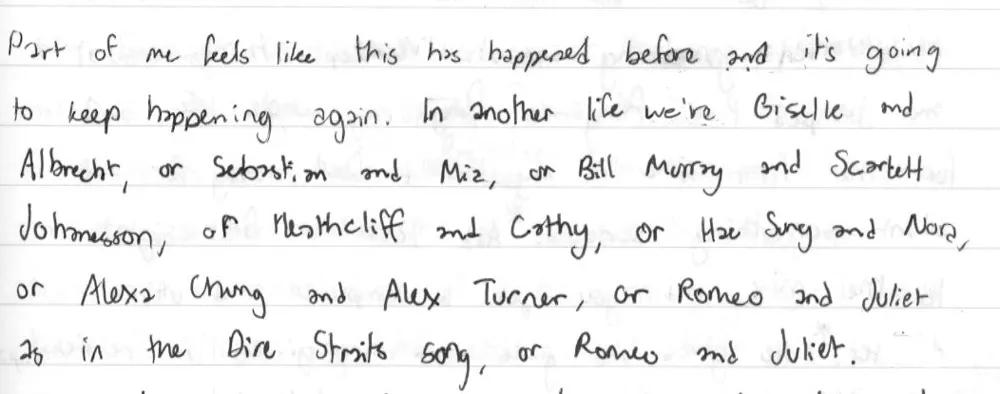 Part of me feels like this has happened before and it's going
to keep happening again. In another life we're Giselle and
Albrecht, or Sebastian and Mia, or Bill Murray and Scarlett
Johannsson, or Heathcliff and Cathy, or Hae Sung and Nora,
or Alexa Chung and Alex Turner, or Romeo and Juliet
as in the Dire Straits song, or Romeo and Juliet.